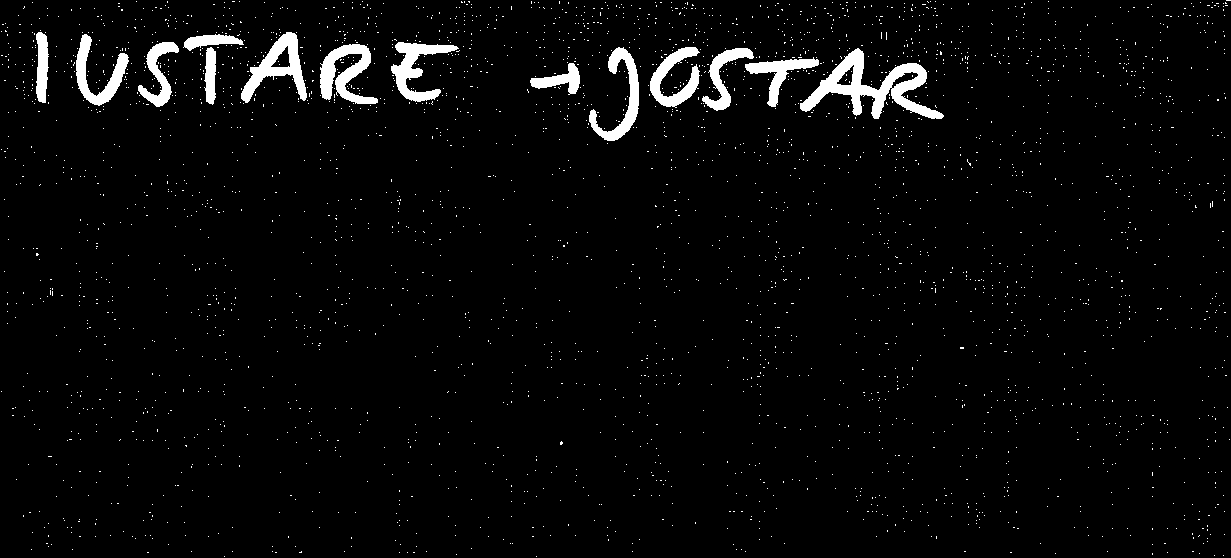 IUSTARE → JOSTAR